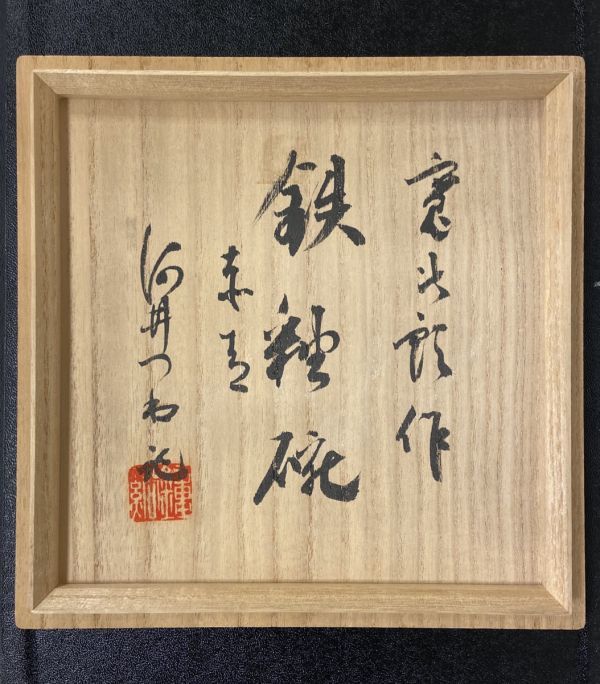 寛次郎作
鉄釉碗
河井つね記